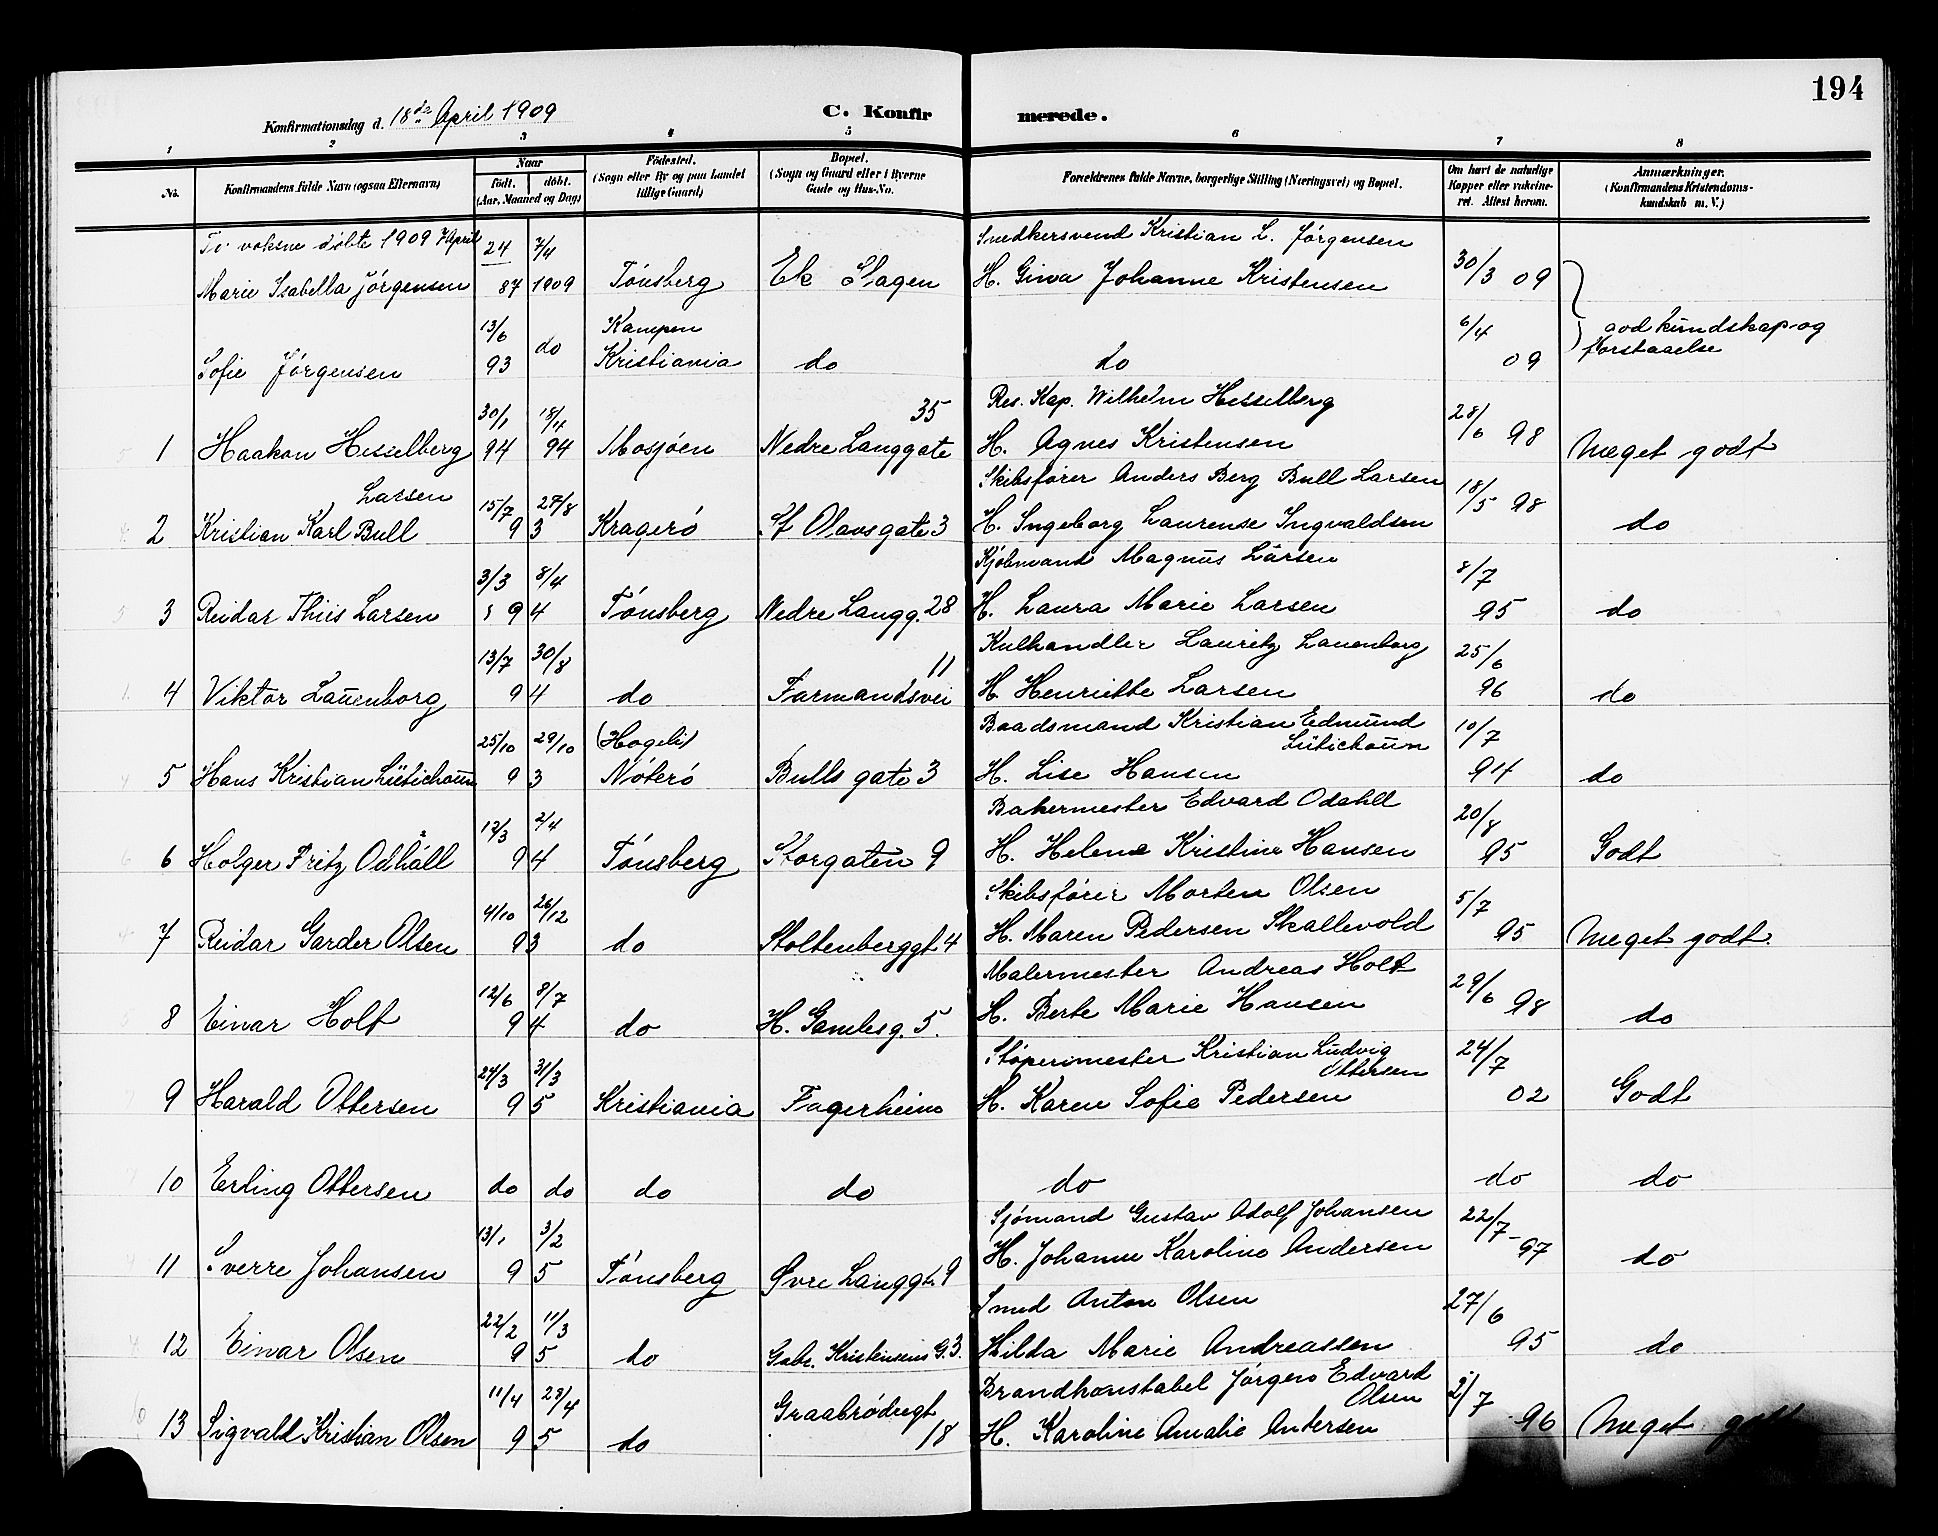 194
Konfirmationsdag d. 18de April 1909 C. Konfir merede.
1 2 3 4 5 6 7 8
No. Konfirmandens fulde Navn (ogsaa Efternavn) Naar født. døbt. (Aar, Maaned og Dag) Fødested. (Sogn eller By og paa Landet tillige Gaard) Bopæl. (Sogn og Gaard eller i Byerne Gade og Hus-No. Forældrenes fulde Navne, borgerlige Stilling (Næringsvei) og Bopæl. Om havt de naturlige Kopper eller vakcineret. Attest herom. Anmærkninger. (Konfirmandens Kristendomskundskab m. V.)
To voksne døbte 1909 7 April 24 7/4 Snedkersvend Kristian L. Jørgensen 30/3 09
Marie Isabella Jørgensen 87 1909 Tønsberg Ek Slagen H. Gina Johanne Kristensen
13/6 do Kampen 6/4 god kundskap og
Sofie Jørgensen 93 Kristiania do do 09 forstaaelse
30/1 18/4 35 Res. Kap. Wilhelm Hesselberg 28/6 98
1 Haakon Hesselberg 94 94 Mosjøen Nedre Langgate H. Agnes Kristensen Meget godt
Larsen 15/7 27/8 Skibsfører Anders Berg Bull Larsen 18/5 98
2 Kristian Karl Bull 9 3 Kragerø St Olavsgate 3 H. Ingeborg Laurense Ingvaldsen do
3/3 8/4 Kjøbmand Magnus Larsen 8/7
3 Reidar Thiis Larsen 9 4 Tønsberg Nedre Langg. 28 H. Laura Marie Larsen 95 do
13/7 30/8 11 Kulhandler Lauritz Lauenborg 25/6
4 Viktor Lauenborg 9 4 do Farmandsvei H Henriette Larsen 96 do
25/10 29/10 (Hogeli) Baadsmand Kristian Edmund Lütichoun 10/7
5 Hans Kristian Lütichoun 9 3 Nøterø Bulls gate 3 H. Lise Hansen 94 do
12/3 2/4 Bakermester Edvard Odahll 20/8
6 Holger Fritz Odhåll 9 4 Tønsberg Storgaten 9 H. Helene Kristine Hansen 95 Godt
4/10 26/12 Skibsfører Morten Olsen 5/7
7 Reidar Garder Olsen 9 3 do Stoltenberggt 4 H. Maren Pedersen Skallevold 95 Meget godt.
12/6 8/7 Malermester Andreas Holt 29/6 98
8 Einar Holt 9 4 do H. Gamlesg. 5. H. Berte Marie Hansen do
24/3 31/3 Støperimester Kristian Ludvig Ottersen 24/7
9 Harald Ottersen 9 5 Kristiania Fagerheim H. Karen Sofie Pedersen 02 Godt
10 Erling Ottersen do do do do do do do
13/1 3/2 Sjømand Gustav Adolf Johansen 22/7
11 Sverre Johansen 9 5 Tønsberg Øvre Langgt. 9 H. Johanne Karoline Andersen 97 do
22/2 11/3 Smed Anton Olsen 27/6
12 Einar Olsen 9 5 do Gabr. Kristensens G. 3. Hilda Marie Andreassen 95 do
11/4 28/4 Graabrødregt Brandkonstabel Jørgen Edvard Olsen 2/7
13 Sigvald Kristian Olsen 9 5 do 18 H. Karoline Amalie Antersen 96 Meget godt